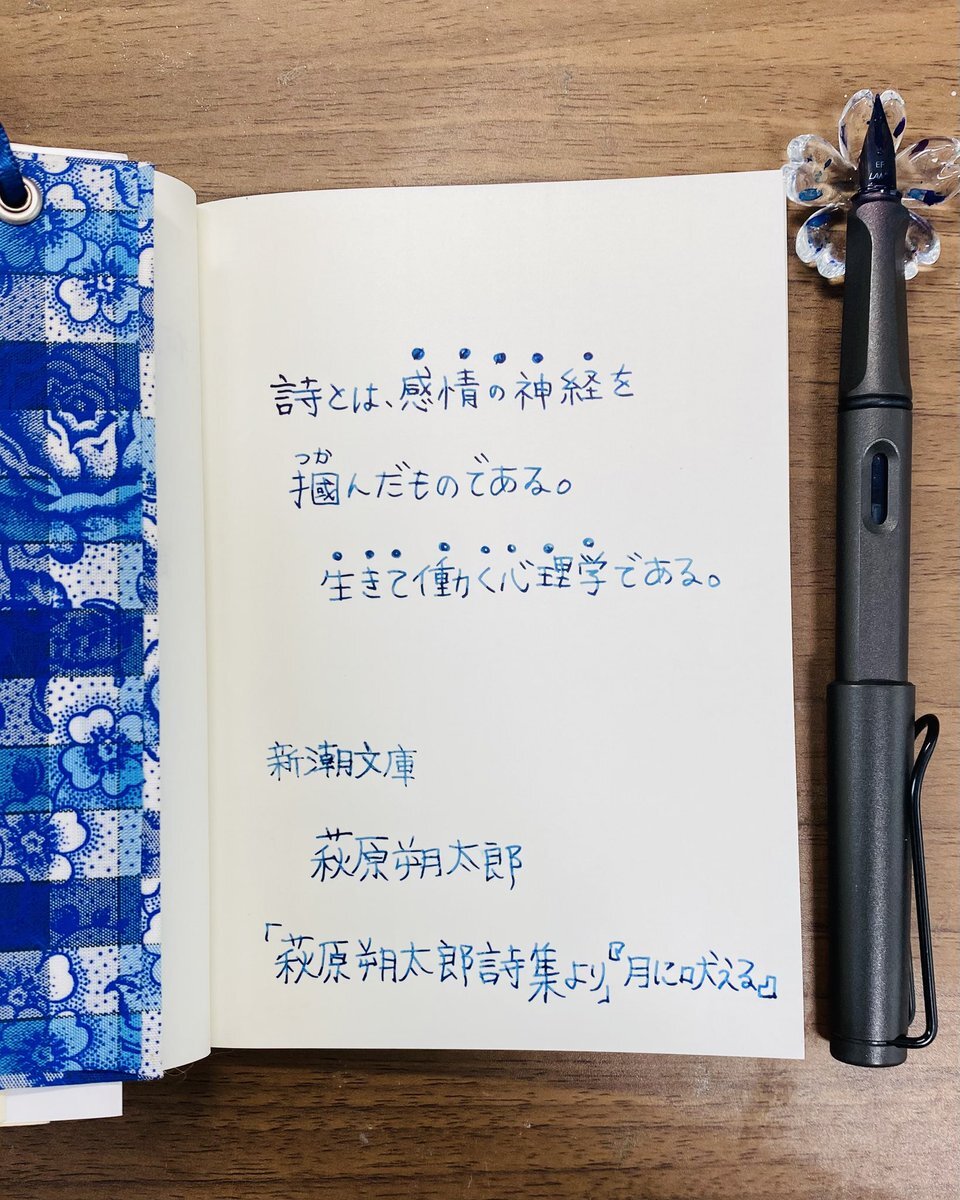 詩とは、感情の神経を
つか
摑んだものである。
生きて働く心理学である。
新潮文庫
萩原朔太郎
「萩原朔太郎詩集より」『月に吠える』
EF
LAMY